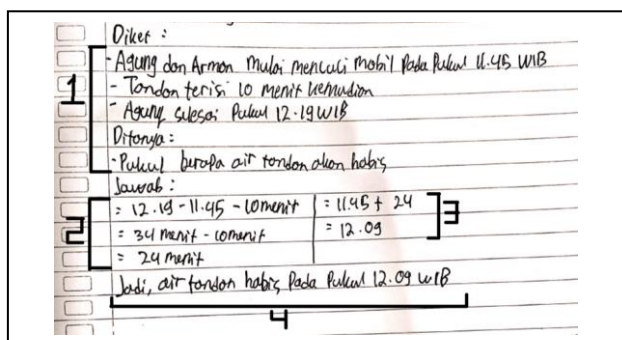 Diket :
- Agung dan Arman mulai mencuci mobil pada pukul 11.45 WIB
- Tandon terisi 10 menit kemudian
- Agung selesai pukul 12.19 WIB
Ditanya :
- Pukul berapa air tandon akan habis
Jawab :
= 12.19 - 11.45 - 10 menit
= 34 menit - 10 menit
= 24 menit
= 11.45 + 24
= 12.09
Jadi, air tandon habis pada pukul 12.09 WIB
1
2
3
4